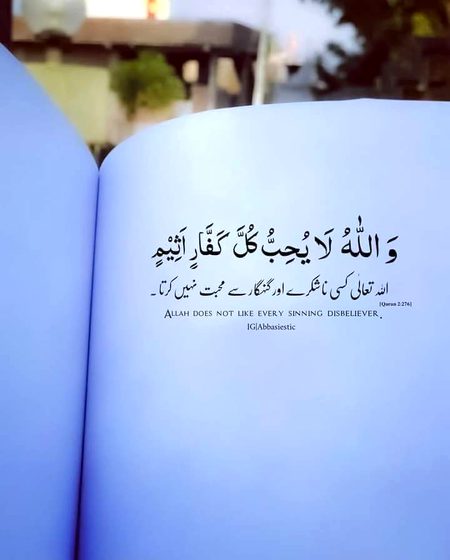 وَ اللّٰهُ لَا یُحِبُّ كُلَّ كَفَّارٍ اَثِیْمٍ
اللہ تعالٰی کسی ناشکرے اور گنہگار سے محبت نہیں کرتا ۔
[Quran 2:276]
ALLAH DOES NOT LIKE EVERY SINNING DISBELIEVER.
IG|Abbasiestic